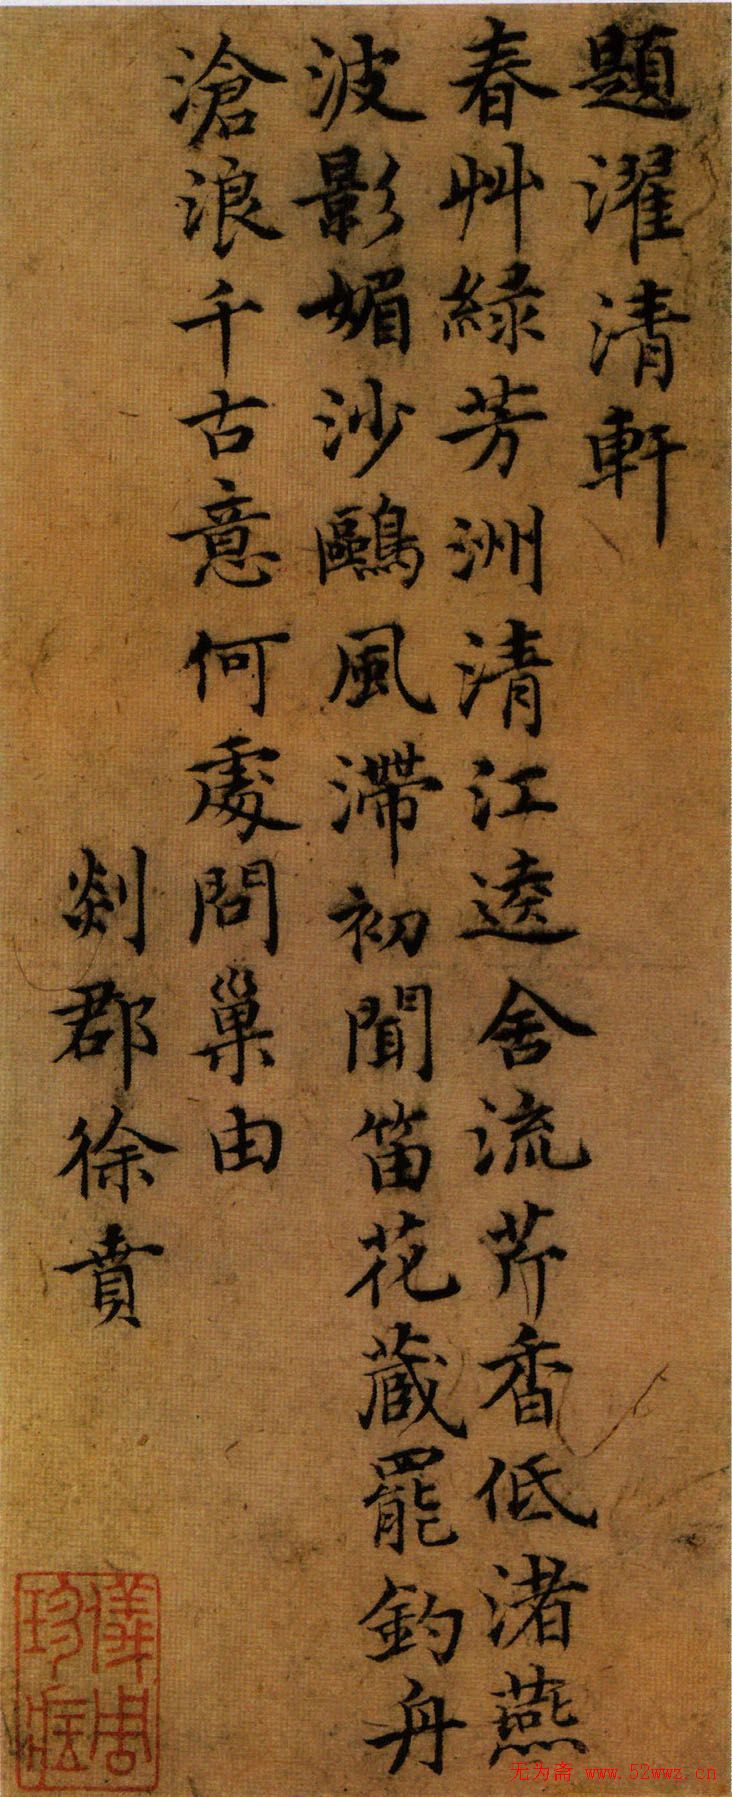 題濯清軒
春艸緑芳洲清江逺舍流芹香低渚燕
波影媚沙鷗風滯初聞笛花蔵罷釣舟
滄浪千古意何處問巢由
剡郡徐賁
儀周珍藏
无为斋 www.52wwz.cn